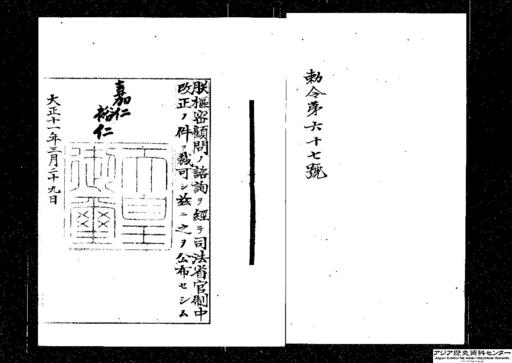 勅令第六十七號
朕樞密顧問ノ諮詢ヲ經テ司法省官制中
改正ノ件ヲ裁可シ茲ニ之ヲ公布セシム
嘉仁
裕仁
天皇
御璽
大正十一年三月二十九日
アジア歴史資料センター
Japan Center for Asian Historical Records